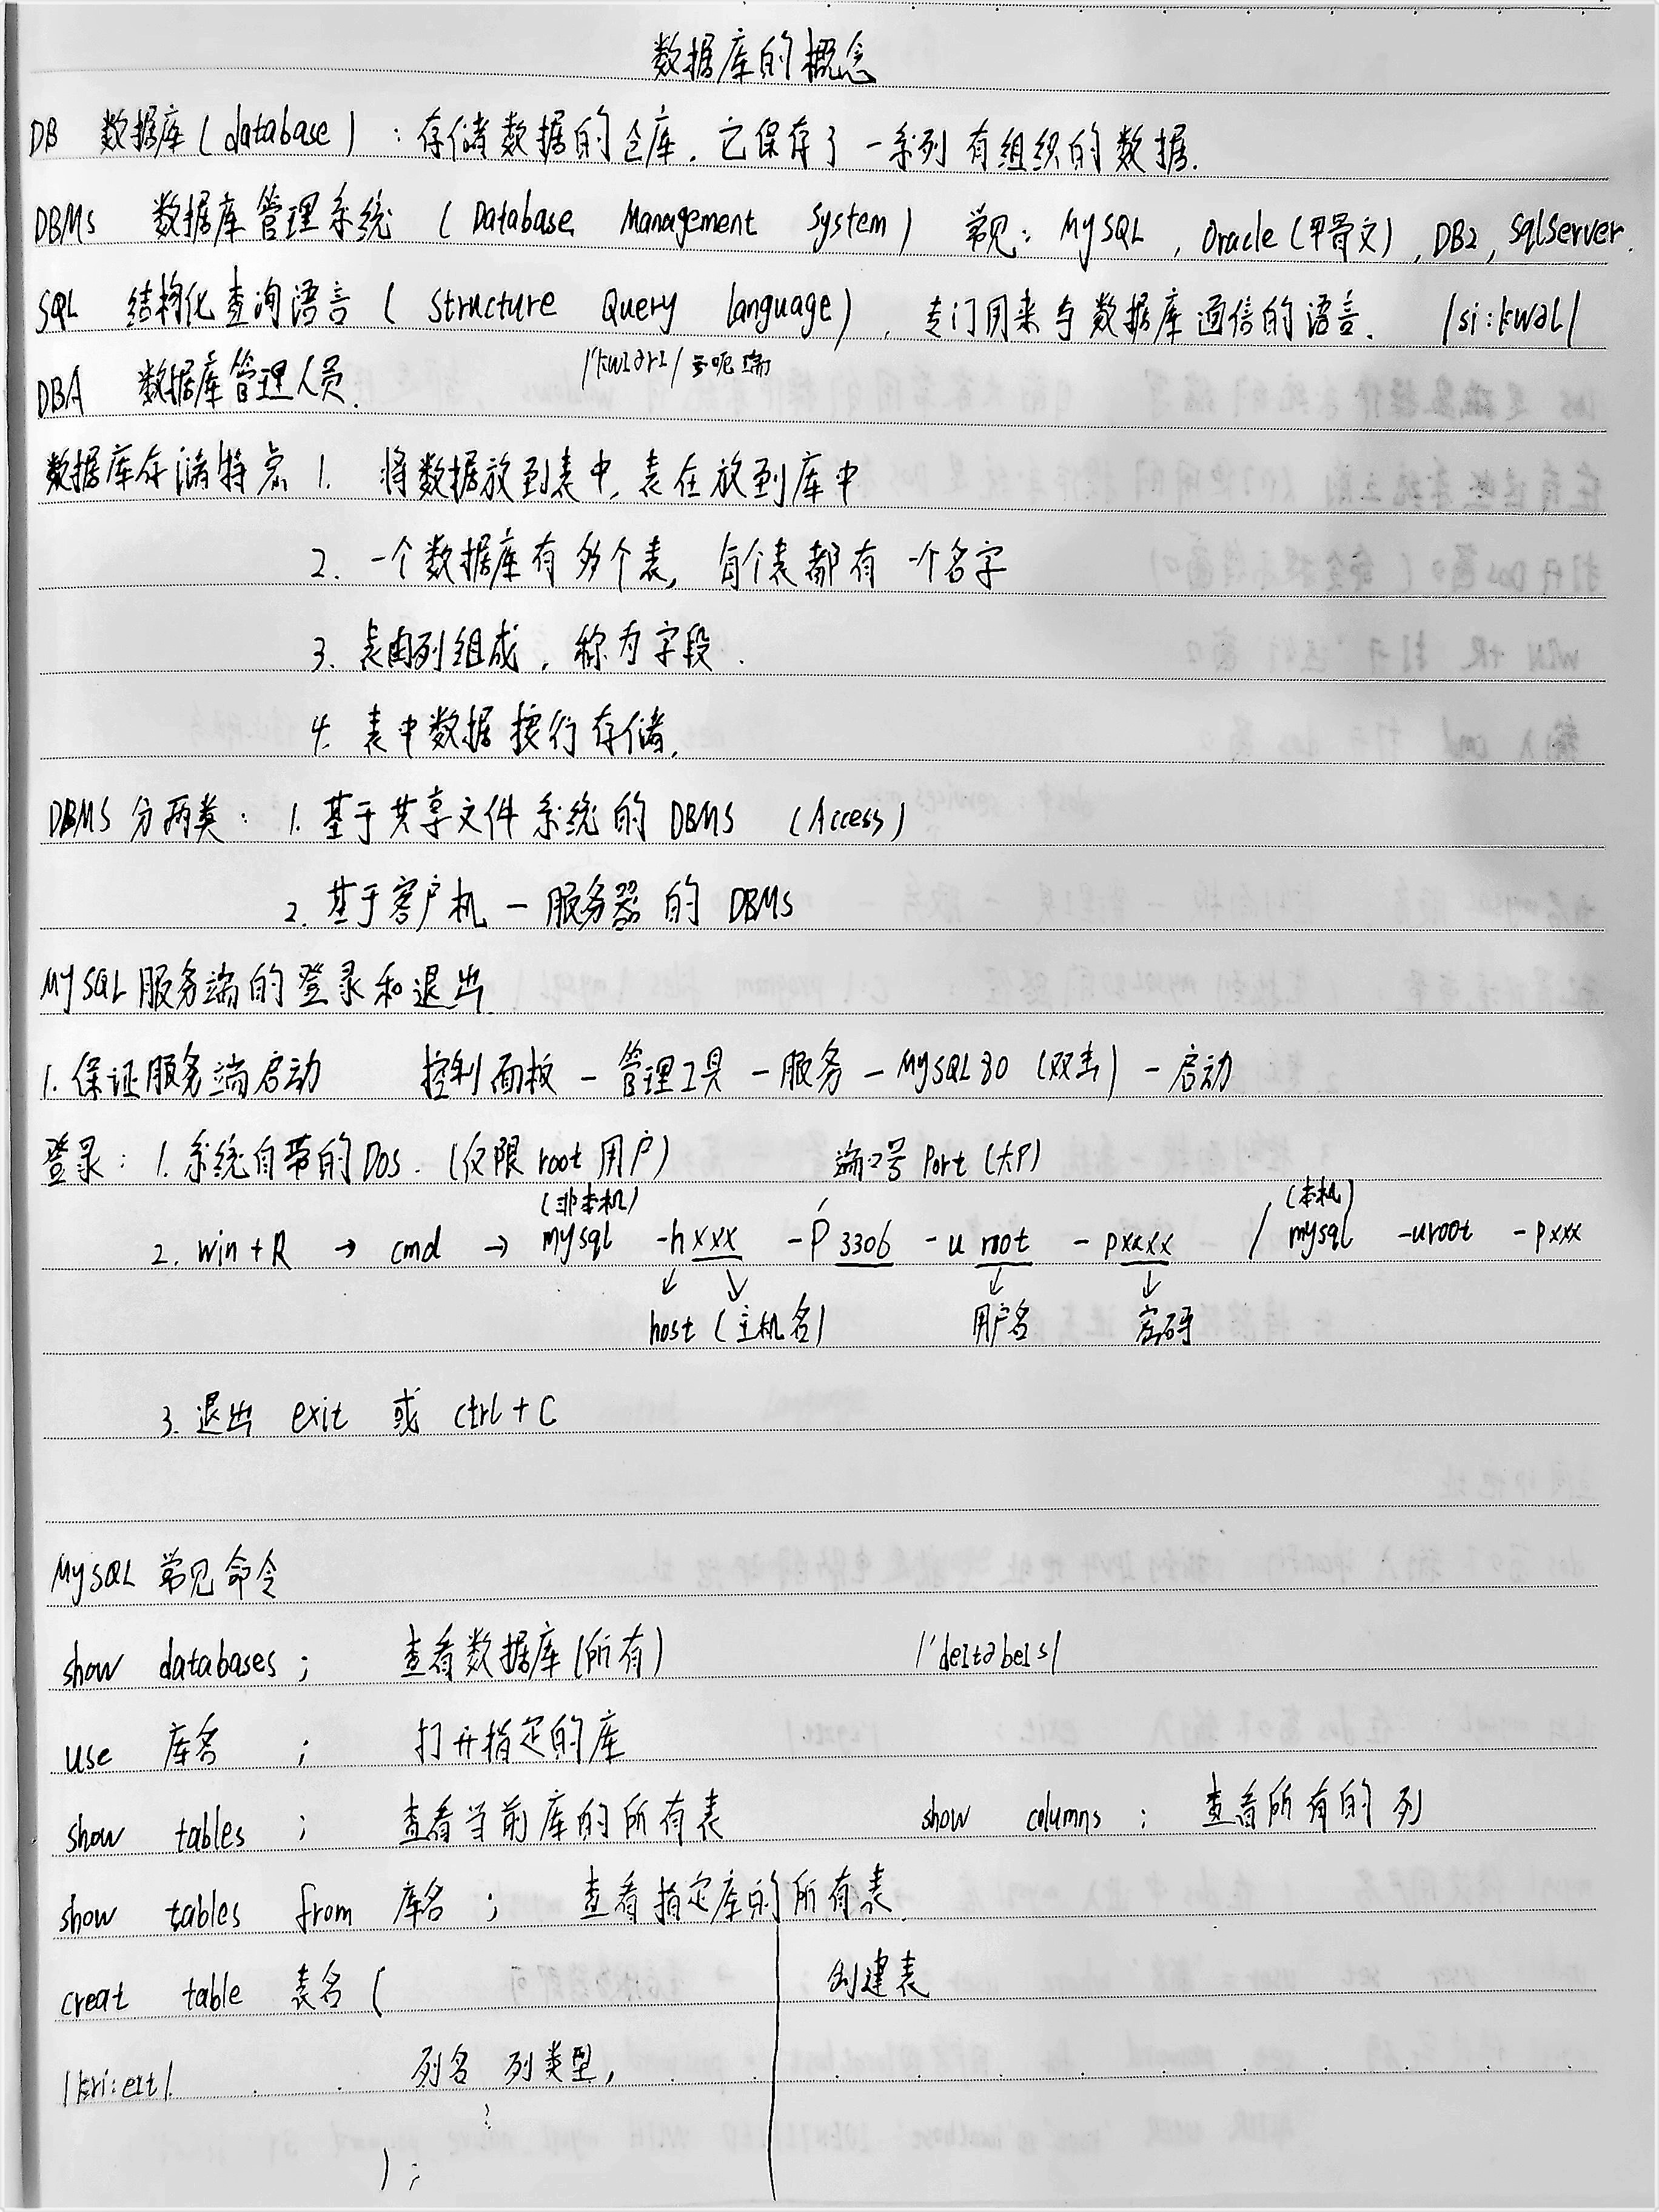 数据库的概念
DB 数据库(database):存储数据的仓库.它保存了一系列有组织的数据.
DBMS 数据库管理系统(Database Management System) 常见:MySQL,Oracle(甲骨文),DB2,SqlServer.
SQL 结构化查询语言(Structure Query Language),专门用来与数据库通信的语言. /si:kwəl/
/ˈkwɪərɪ/
DBA 数据库管理人员.
数据库存储特点 1. 将数据放到表中,表在放到库中
2. 一个数据库有多个表,每个表都有一个名字
3. 表由列组成,称为字段.
4. 表中数据按行存储.
DBMS分两类:1.基于共享文件系统的DBMS (Access)
2.基于客户机-服务器的DBMS
MySQL服务端的登录和退出
1.保证服务端启动 控制面板-管理工具-服务-MySQL80(双击)-启动
登录:1.系统自带的Dos.(仅限root用户) 端口号Port(大P)
(非本机) (本机)
2. win+R → cmd → mysql -hxxx -P 3306 -u root -pxxxx / mysql -uroot -pxxx
host(主机名) 用户名 密码
3.退出 exit 或 ctrl+C
MySQL 常见命令
show databases; 查看数据库(所有) /ˈdeɪtəbeɪs/
use 库名 ; 打开指定的库
show tables ; 查看当前库的所有表 show columns ; 查看所有的列
show tables from 库名 ; 查看指定库的所有表.
creat table 表名( 创建表
/kri:eɪt/ 列名 列类型,
);